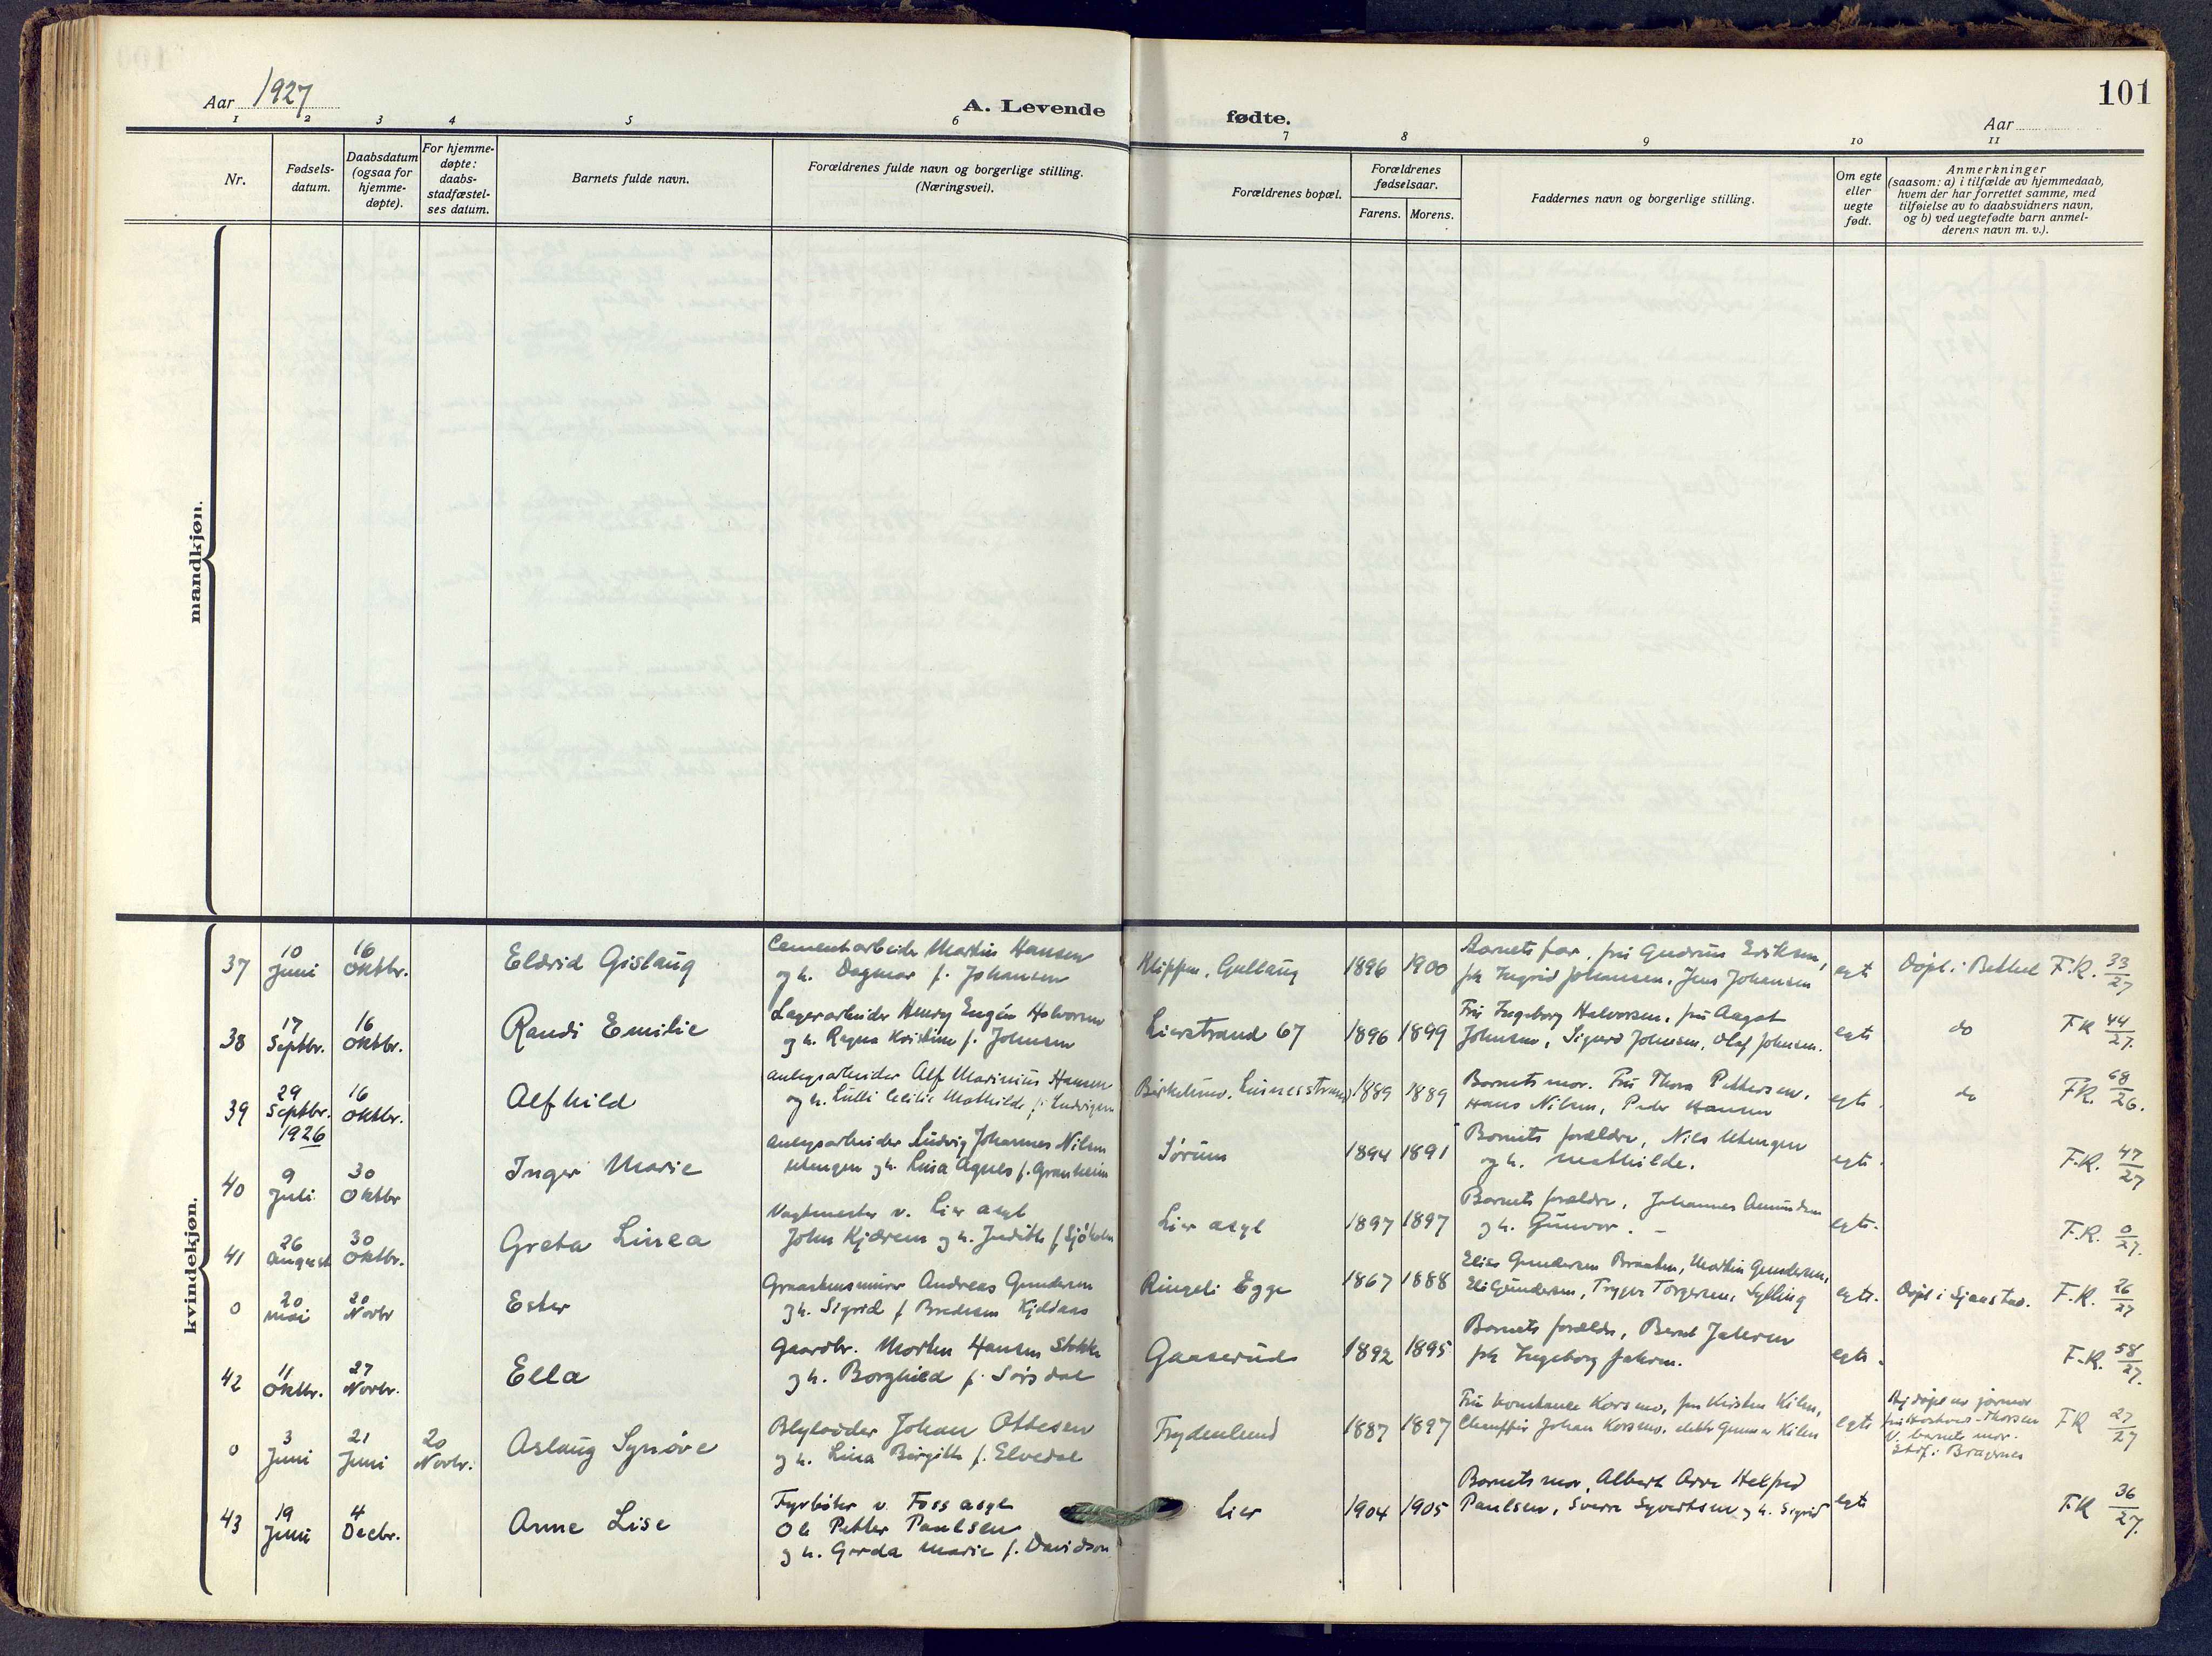 101
Aar 1927
A. Levende
fødte.
Aar
1 2 3 4 5 6 7 8 9 10 11
Nr.
Fødsels-
datum.
Daabsdatum
(ogsaa for
hjemme-
døpte).
For hjemme-
døpte:
daabs-
stadfæstel-
ses datum.
Barnets fulde navn.
Forældrenes fulde navn og borgerlige stilling.
(Næringsvei).
Forældrenes bopæl.
Forældrenes
fødselsaar.
Farens. Morens.
Faddernes navn og borgerlige stilling.
Om egte
eller
uegte
født.
Anmerkninger
(saasom: a) i tilfælde av hjemmedaab,
hvem der har forrettet samme, med
tilføielse av to daabsvidners navn,
og b) ved uegtefødte barn anmel-
derens navn m. v.).
mandkjøn.
kvindekjøn.
37 10 Juni 16 Oktbr. Eldrid Gislaug
Cementarbeider Martin Hansen
og h. Dagmar f. Johansen
Klippen, Gullaug 1896 1900
Barnets far, fru Gudrun Eriksen,
frk Ingrid Johannesen, Jens Johansen
egte Døpt i Bethel F.K. 33/27
38 17 Septbr. 16 Oktbr. Randi Emilie
Lagerarbeider Henry Eugén Halvorsen
og h. Ragna Kristine f. Johnsen
Lierstrand 67 1896 1899
Fru Ingeborg Halvorsen, fru Aagot
Johnsen, Sigurd Johnsen, Olaf Johnsen.
egte do F.K 44/27.
39 29 Septbr. 1926 16 Oktbr. Alfhild
Anlegsarbeider Alf Marinius Hansen
og h. Lulli Cecilie Mathilde f. Ludvigsen
Birkelund, Linnesstrand 1889 1889
Barnets mor. Fru Thora Pettersen,
Hans Nilsen, Peder Hansen
egte. do FK. 68/26.
40 9 Juli 30 Oktbr Inger Marie
Anlegsarbeider Ludvig Johannes Nilsen
og h. Lina Agnes f. Granheim
Sørum 1894 1891
Barnets forældre, Nils
og h. Mathilde.
egte. F.K. 47/27
41 26 August 30 Oktbr. Greta Linea
Vagtmester v. Lier asyl
John Kjærem og h. Judith f. Sjøholm
Lier asyl 1897 1897
Barnets forældre, Johannes Amundsen
og h. Gunvor. –
egte. F.K. 0/27.
0 20 mai 20 Novbr Ester
Andreas Gundersen
og h. Sigrid f Bredesen Kjeldaas
Ringeli Egge 1867 1888
Elias Gundersen Braaten, Martin Gundersen,
Eli Gundersen, Trygve Torgersen, Sylling
egte. Døpt i Sjaastad. F.K. 26/27
42 11 Oktbr. 27 Novbr. Ella
Gaardbr. Morten Hansen Stokke
og h. Borghild f. Sørsdal
Gaaserud 1892 1895
Barnets forældre, Bernt Jahren
frk Ingeborg Jahren.
egte. F.K. 58/27.
0 3 Juni 21 Juni 20 Novbr. Aslaug Synøve
Johan Ottesen
og h. Lina Birgitte f. Elvedal
Frydenlund 1887 1897
Fru Konstance Korsmo, fru Kirsten Kilen,
Chauffør Johan Korsmo, Gunnar Kilen
egte Hj.døpt av jormor
Thorsen
v. barnets mor.
Stdf. i Bragernes
FK 27/27
43 19 Juni 4 Decbr. Anne Lise
Fyrbøter v. Foss asyl
Ole Petter Paulsen
og h. Gerda Marie f. Davidson
Lier 1904 1905
Barnets mor, Albert Arve Helfred
Paulsen, Sverre Syvertsen og h. Sigrid
egte F.K 36/27.